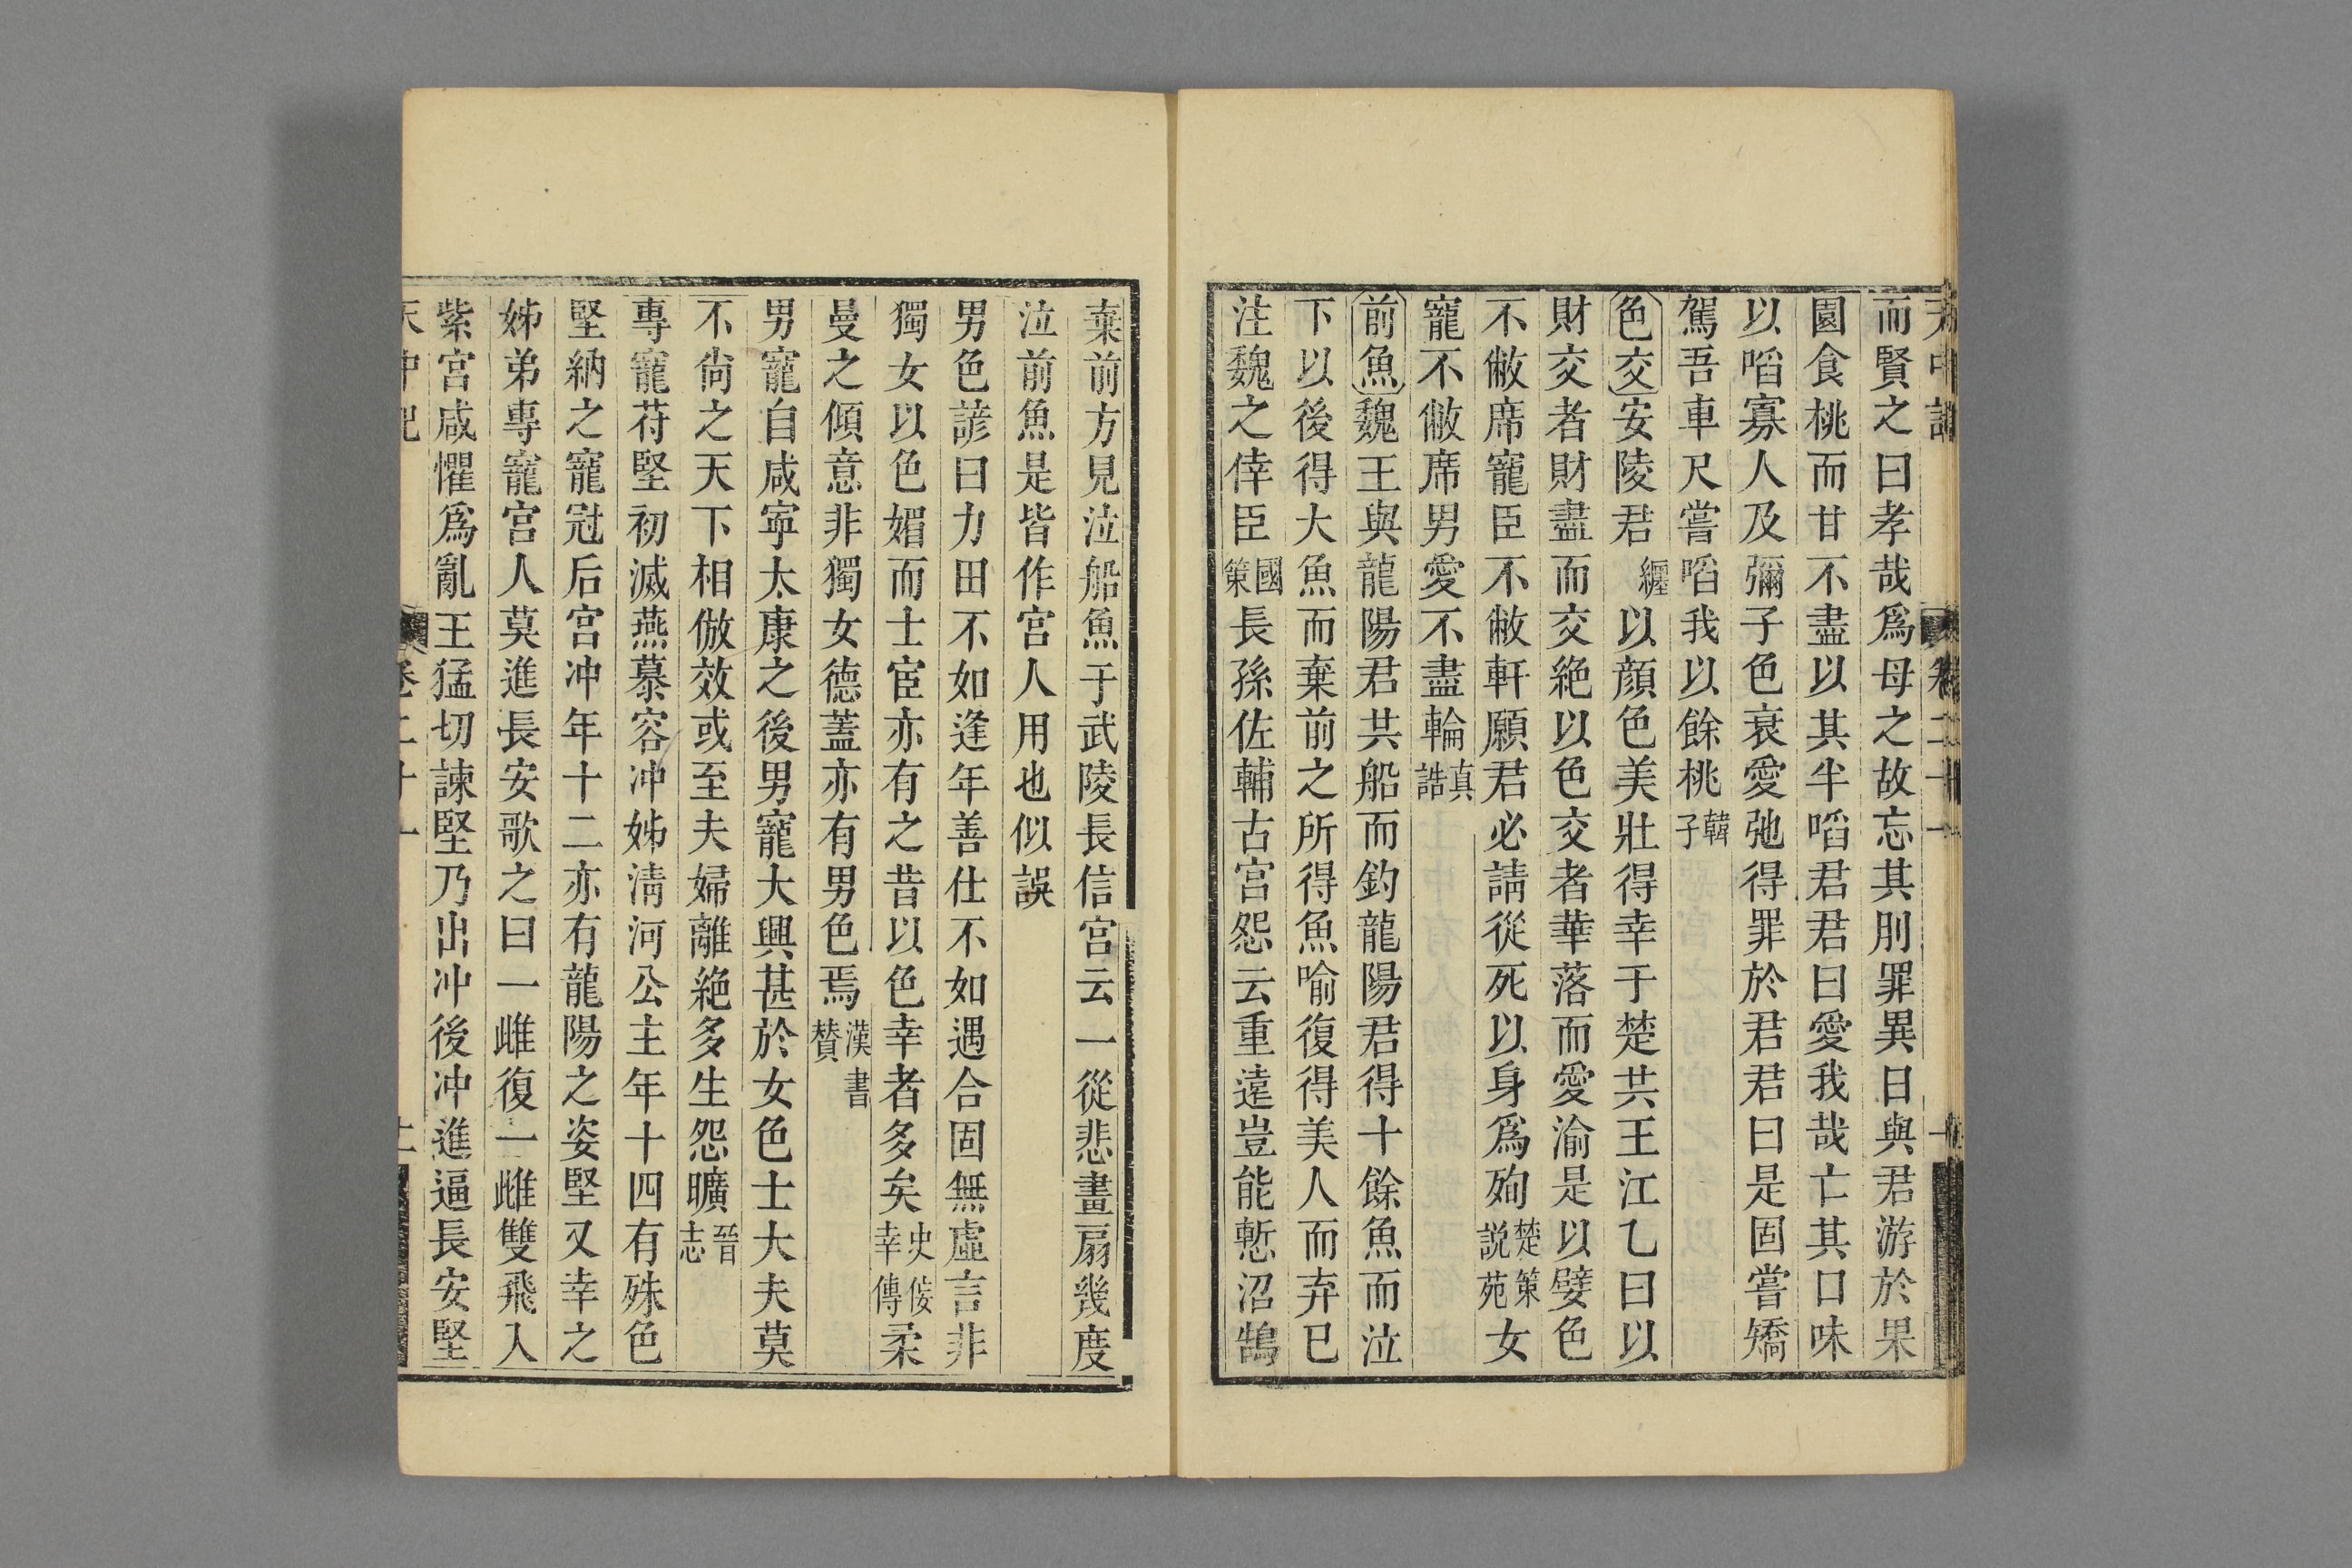 天中記 卷二十一
而賢之曰孝哉爲母之故忘其刖罪異日與君游於果
園食桃而甘不盡以其半啗君君曰愛我哉亡其口味
以啗寡人及彌子色衰愛弛得罪於君君曰是固嘗矯
駕吾車尺嘗啗我以餘桃韓子
色交安陵君纒以顔色美壯得幸于楚共王江乙曰以
財交者財盡而交絶以色交者華落而愛渝是以嬖色
不敝席寵臣不敝軒願君必請從死以身爲殉楚策說苑女
寵不敝席男愛不盡輪真誥
前魚魏王與龍陽君共船而釣龍陽君得十餘魚而泣
下以後得大魚而棄前之所得魚喻復得美人而弃已
注魏之倖臣國策長孫佐輔古宮怨云重遠豈能慙沼鵠
棄前方見泣船魚于武陵長信宮云一從悲畫扇幾度
泣前魚是皆作宮人用也似誤
男色諺曰力田不如逢年善仕不如遇合固無虛言非
獨女以色媚而士宦亦有之昔以色幸者多矣史佞幸傳柔
曼之傾意非獨女德蓋亦有男色焉漢書贊
男寵自咸寧太康之後男寵大興甚於女色士大夫莫
不尙之天下相倣效或至夫婦離絶多生怨曠晉志
專寵苻堅初滅燕慕容冲姊淸河公主年十四有殊色
堅納之寵冠后宮冲年十二亦有龍陽之姿堅又幸之
姊弟專寵宮人莫進長安歌之曰一雌復一雌雙飛入
紫宮咸懼爲亂王猛切諫堅乃出冲後冲進逼長安堅
天中記 卷二十一